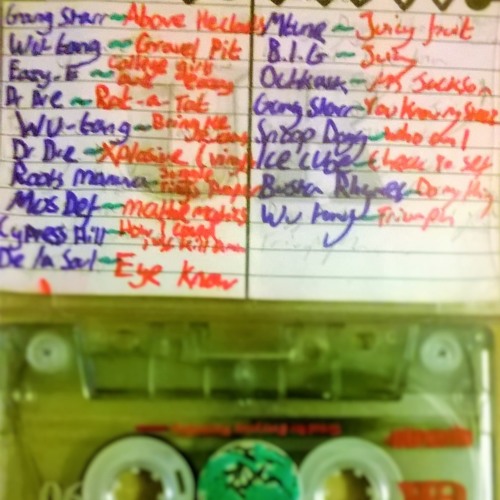 Gang Starr ~ Above the Clouds
Wu-tang ~ Gravel Pit
Eazy-E ~
Dr Dre ~ Rat-a-Tat
Wu-tang ~ Bring the
Dr Dre ~ Xplosive (vinyl
Roots manuva ~
Mos Def ~ mathematics
Cypress Hill ~ How I could
just kill a man
De la Soul ~ Eye Know
Mtume ~ Juicy fruit
B.I.G ~ Juicy
Outkast ~ Ms Jackson
Gang Starr ~ You Know my Steez
Snoop Dogg ~ who am I
Ice Cube ~ Check yo self
Busta Rhymes ~ Do my thing
Wu tang ~ Triumph